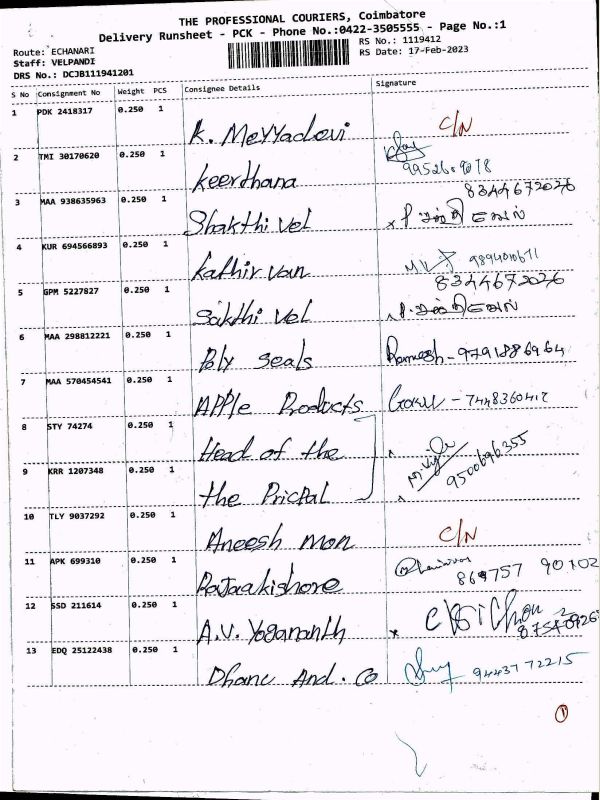 THE PROFESSIONAL COURIERS, Coimbatore
Delivery Runsheet - PCK - Phone No.:0422-3505555 - Page No.:1
Route: ECHANARI
RS No.: 1119412
Staff: VELPANDI
RS Date: 17-Feb-2023
DRS No.: DCJB111941201
S No Consignment No Weight PCS Consignee Details Signature
1 PDK 2418317 0.250 1 K. Meyyadevi C/N
2 TMI 30170620 0.250 1 Keerthana
8344672026
3 MAA 938635963 0.250 1 Shakthi vel × P. சக்திவேல்
4 KUR 694566893 0.250 1 Kathir van
8344672026
5 GPM 5227827 0.250 1 Sakthi vel P. சக்திவேல்
6 MAA 298812221 0.250 1 Poly Seals Ramesh - 9791886964
7 MAA 570454541 0.250 1 APPle Products Gokul - 7448360412
8 STY 74274 0.250 1 Head of the
9 KRR 1207348 0.250 1 the Pricpal 9500696355
10 TLY 9037292 0.250 1 Aneesh mon C/N
11 APK 699310 0.250 1 Rajaakishore
12 SSD 211614 0.250 1 A.V. Yogananth ×
13 EDQ 25122438 0.250 1 Dhanc And. Co 9443772215
1